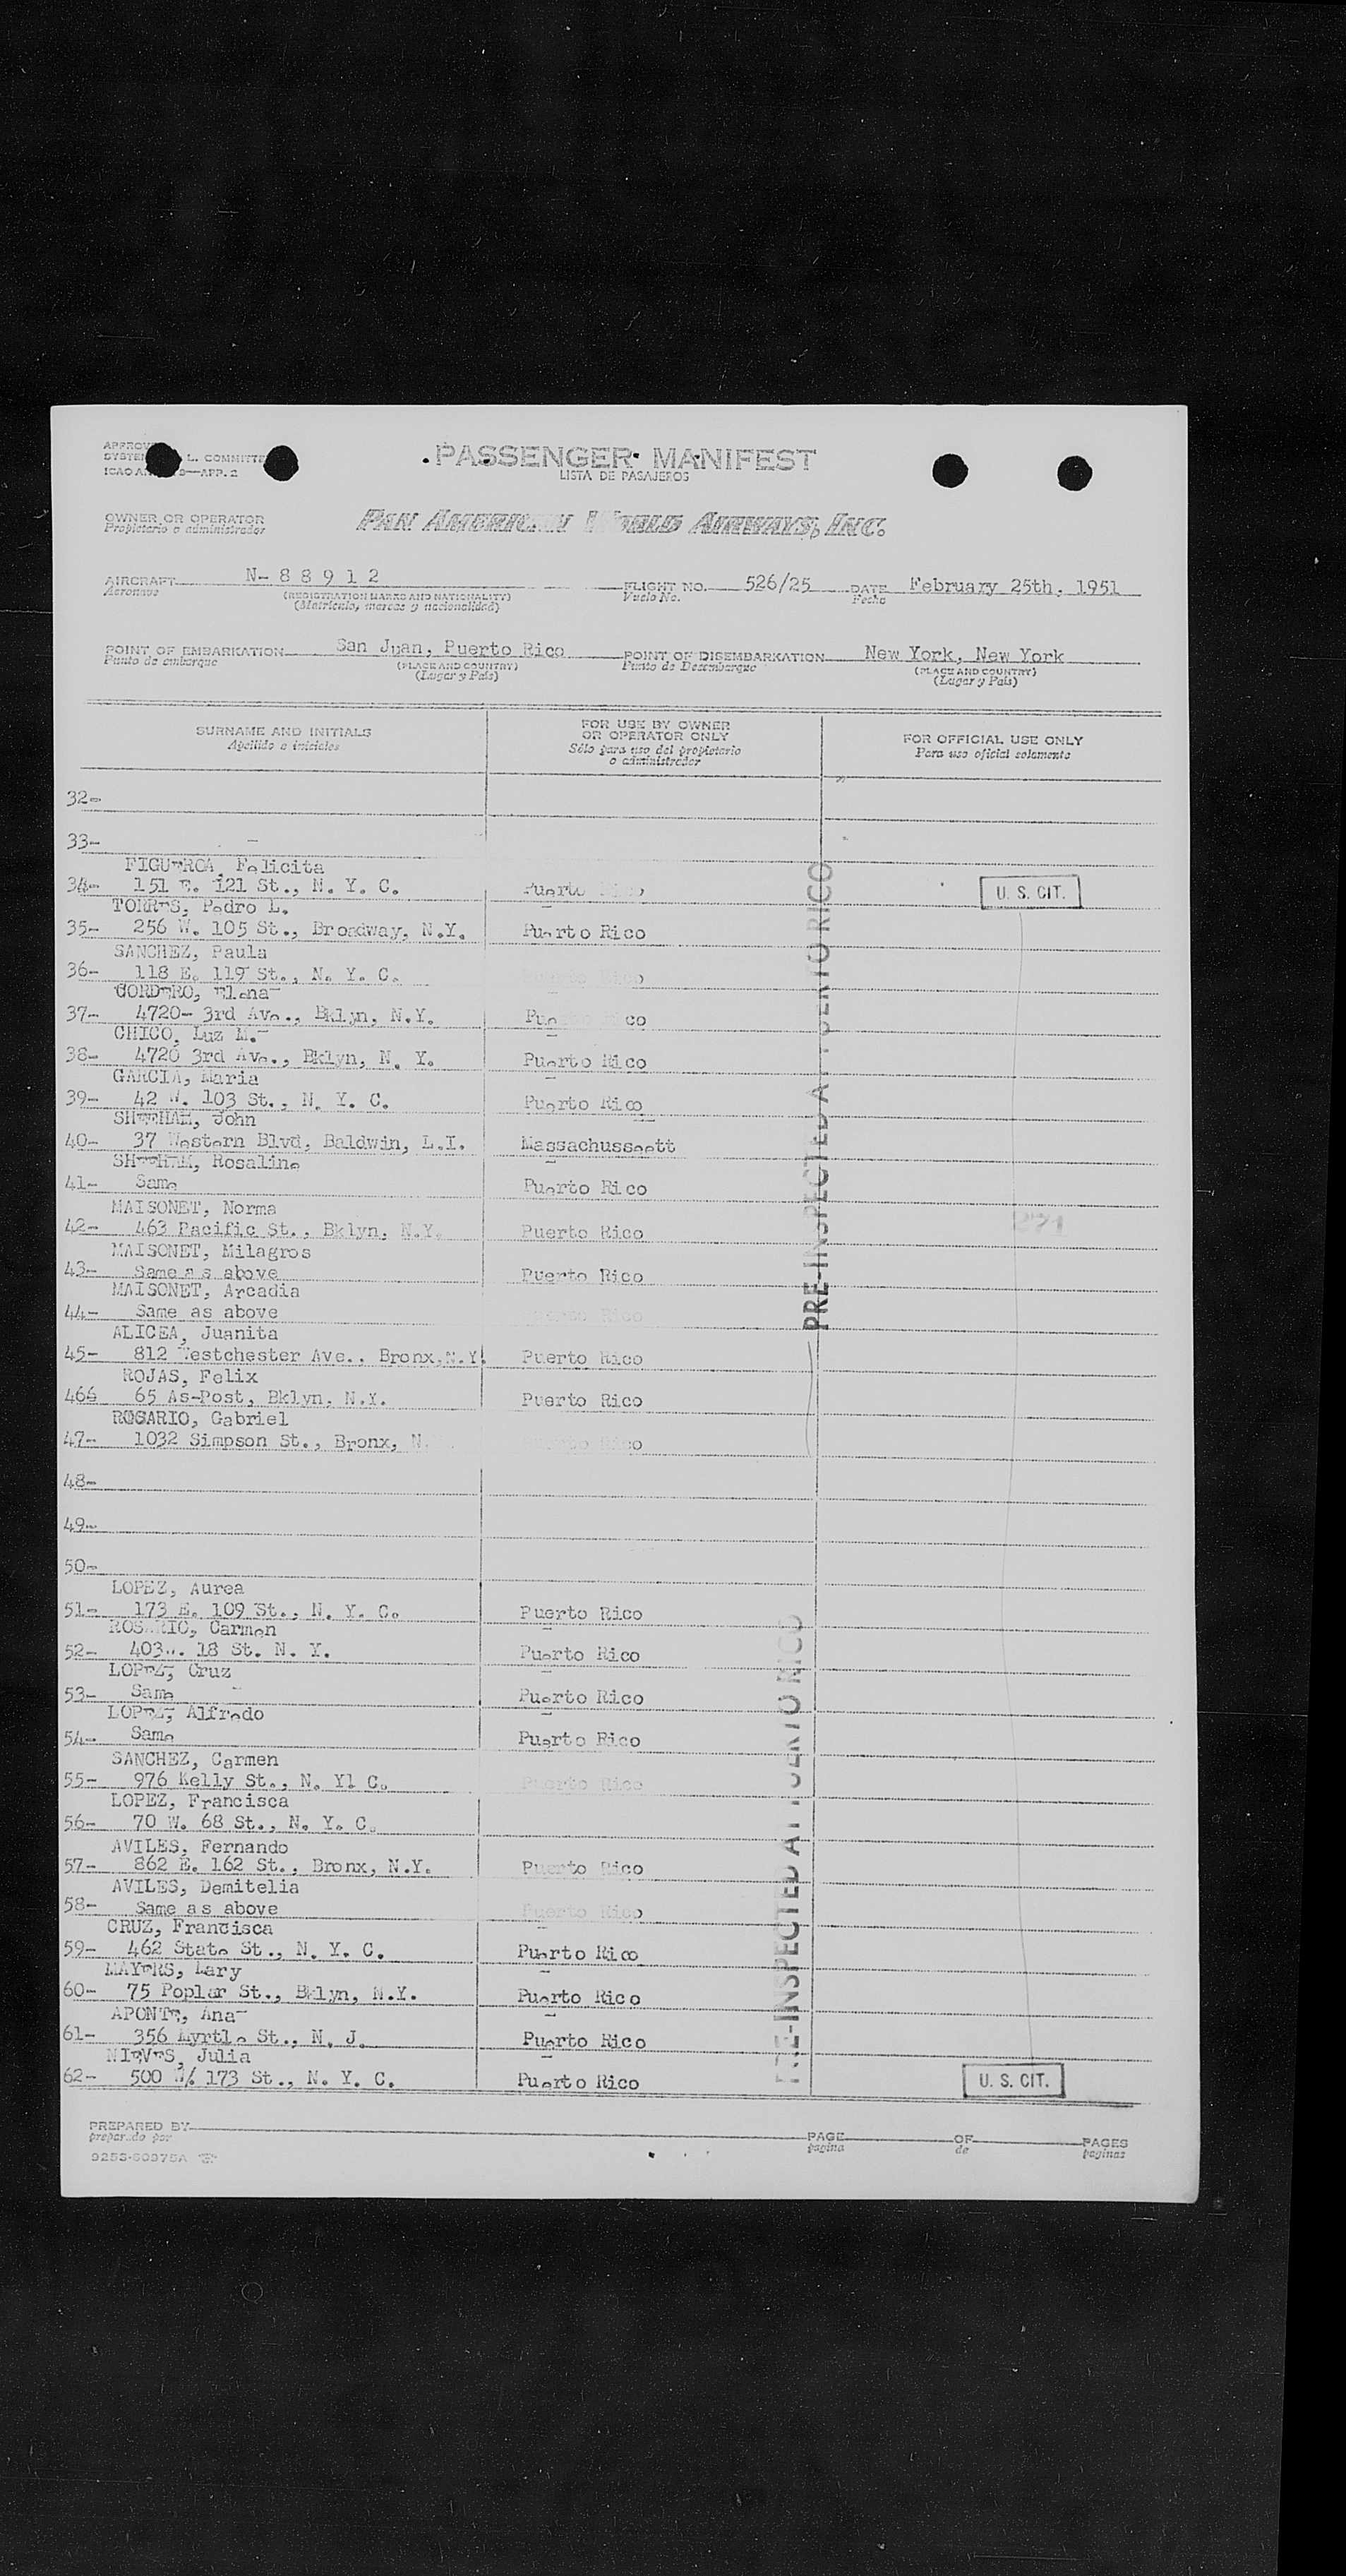 PASSENGER MANIFEST
LISTA DE PASAJEROS
ICAO
OWNER OR OPERATOR
Propietario o administrador
PAN AMERICAN WORLD AIRWAYS, INC.
AIRCRAFT N- 8 8 9 1 2 FLIGHT NO. 526/25 DATE February 25th, 1951
Aeronave (REGISTRATION MARKS AND NATIONALITY) Vuelo No. Fecha
(Matricula, marcas y nacionalidad)
POINT OF EMBARKATION San Juan, Puerto Rico POINT OF DISEMBARKATION New York, New York
Punto de embarque (PLACE AND COUNTRY) Punto de Desembarque (PLACE AND COUNTRY)
(Lugar y Pais) (Lugar y Pais)
SURNAME AND INITIALS
Apellido e iniciales
FOR USE BY OWNER
OR OPERATOR ONLY
Sólo para uso del propietario
o administrador
FOR OFFICIAL USE ONLY
Para uso oficial solamente
32-
33-
FIGUEROA, Felicita
34- 151 E. 121 St., N. Y. C. Puerto Rico U. S. CIT.
TORRES, Pedro L.
35- 256 W. 105 St., Broadway, N.Y. Puerto Rico
SANCHEZ, Paula
36- 118 E. 119 St., N. Y. C. Puerto Rico
CORDERO, Elena
37- 4720- 3rd Ave., Bklyn, N.Y. Puerto Rico
CHICO, Luz M.
38- 4720 3rd Ave., Bklyn, N. Y. Puerto Rico
GARCIA, Maria
39- 42 W. 103 St., N. Y. C. Puerto Rico
SHEEHAM, John
40- 37 Western Blvd, Baldwin, L.I. Massachusseett
SHEEHAM, Rosaline
41- Same Puerto Rico
MAISONET, Norma
42- 463 Pacific St., Bklyn, N.Y. Puerto Rico
MAISONET, Milagros
43- Same as above Puerto Rico
MAISONET, Arcadia
44- Same as above Puerto Rico
ALICEA, Juanita
45- 812 Westchester Ave., Bronx, N.Y. Puerto Rico
ROJAS, Felix
466 65 As-Post, Bklyn, N.Y. Puerto Rico
ROSARIO, Gabriel
47- 1032 Simpson St., Bronx, N. Puerto Rico
PRE-INSPECTED AT PUERTO RICO
48-
49-
50-
LOPEZ, Aurea
51- 173 E. 109 St., N. Y. C. Puerto Rico
ROSARIO, Carmen
52- 403 W. 18 St. N. Y. Puerto Rico
LOPEZ, Cruz
53- Same Puerto Rico
LOPEZ, Alfredo
54- Same Puerto Rico
SANCHEZ, Carmen
55- 976 Kelly St., N. Yl C. Puerto Rico
LOPEZ, Francisca
56- 70 W. 68 St., N. Y. C.
AVILES, Fernando
57- 862 E. 162 St., Bronx, N.Y. Puerto Rico
AVILES, Demitelia
58- Same as above Puerto Rico
CRUZ, Francisca
59- 462 State St., N. Y. C. Puerto Rico
MAYERS, Lary
60- 75 Poplar St., Bklyn, N.Y. Puerto Rico
APONTE, Ana
61- 356 Myrtle St., N. J. Puerto Rico
NIEVES, Julia
62- 500 W/ 173 St., N. Y. C. Puerto Rico U. S. CIT.
PRE-INSPECTED AT PUERTO RICO
PREPARED BY PAGE OF PAGES
preparado por pagina de paginas